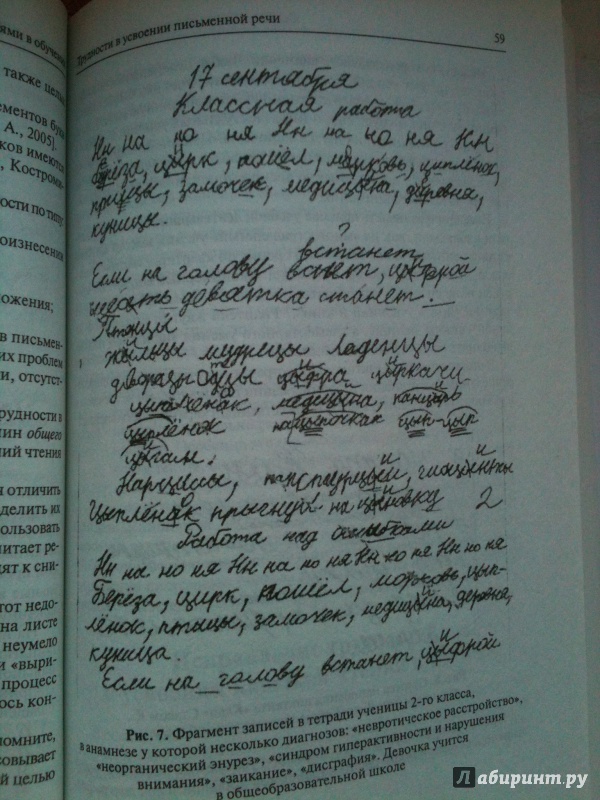 Трудности в усвоении письменной речи 59
17 сентября
Классная работа
Нн на но ня Нн на но ня Нн
берёза, цирк, пошёл, морковь, цыплёнок,
замочек, медицына, деровня,
куницы.
?
встанет
Если на голову ванет, цыфрой
девятка станет.
Птицы
жыльцы мудрецы леденцы
цыфра цыркачи
цыплёнак, медицына, панцырь
цырлёнок нацыпочках цып-цып
цыган.
Нарцисы,
Цыплёнак прыгнул на цыновку 2
Работа над ошыбками
Нн на но ня Нн на но ня Нн но ня Нн но ня
Берёза, цирк, пошёл, морковь, цып-
лёнок, птицы, замочек, медицына, деревня,
куница.
Если на голову встанет, цыфрой
Рис. 7. Фрагмент записей в тетради ученицы 2-го класса,
в анамнезе у которой несколько диагнозов: «невротическое расстройство»,
«неорганический энурез», «синдром гиперактивности и нарушения
внимания», «заикание», «дисграфия». Девочка учится
в общеобразовательной школе
ями в обучен
также целы
ементов бук
А., 2005).
ков имеются
, Кострома-
ности по типу
оизнесении
ожения;
в письмен-
их проблем
и, отсутст-
рудности в
чин общего
ний чтения
я отличить
делить их
ользовать
читает ре-
дят к сни-
тот недо-
на листе
неумело
и «выри-
процесс
ось кон-
помните,
совывает
й целью
Лабиринт.ру